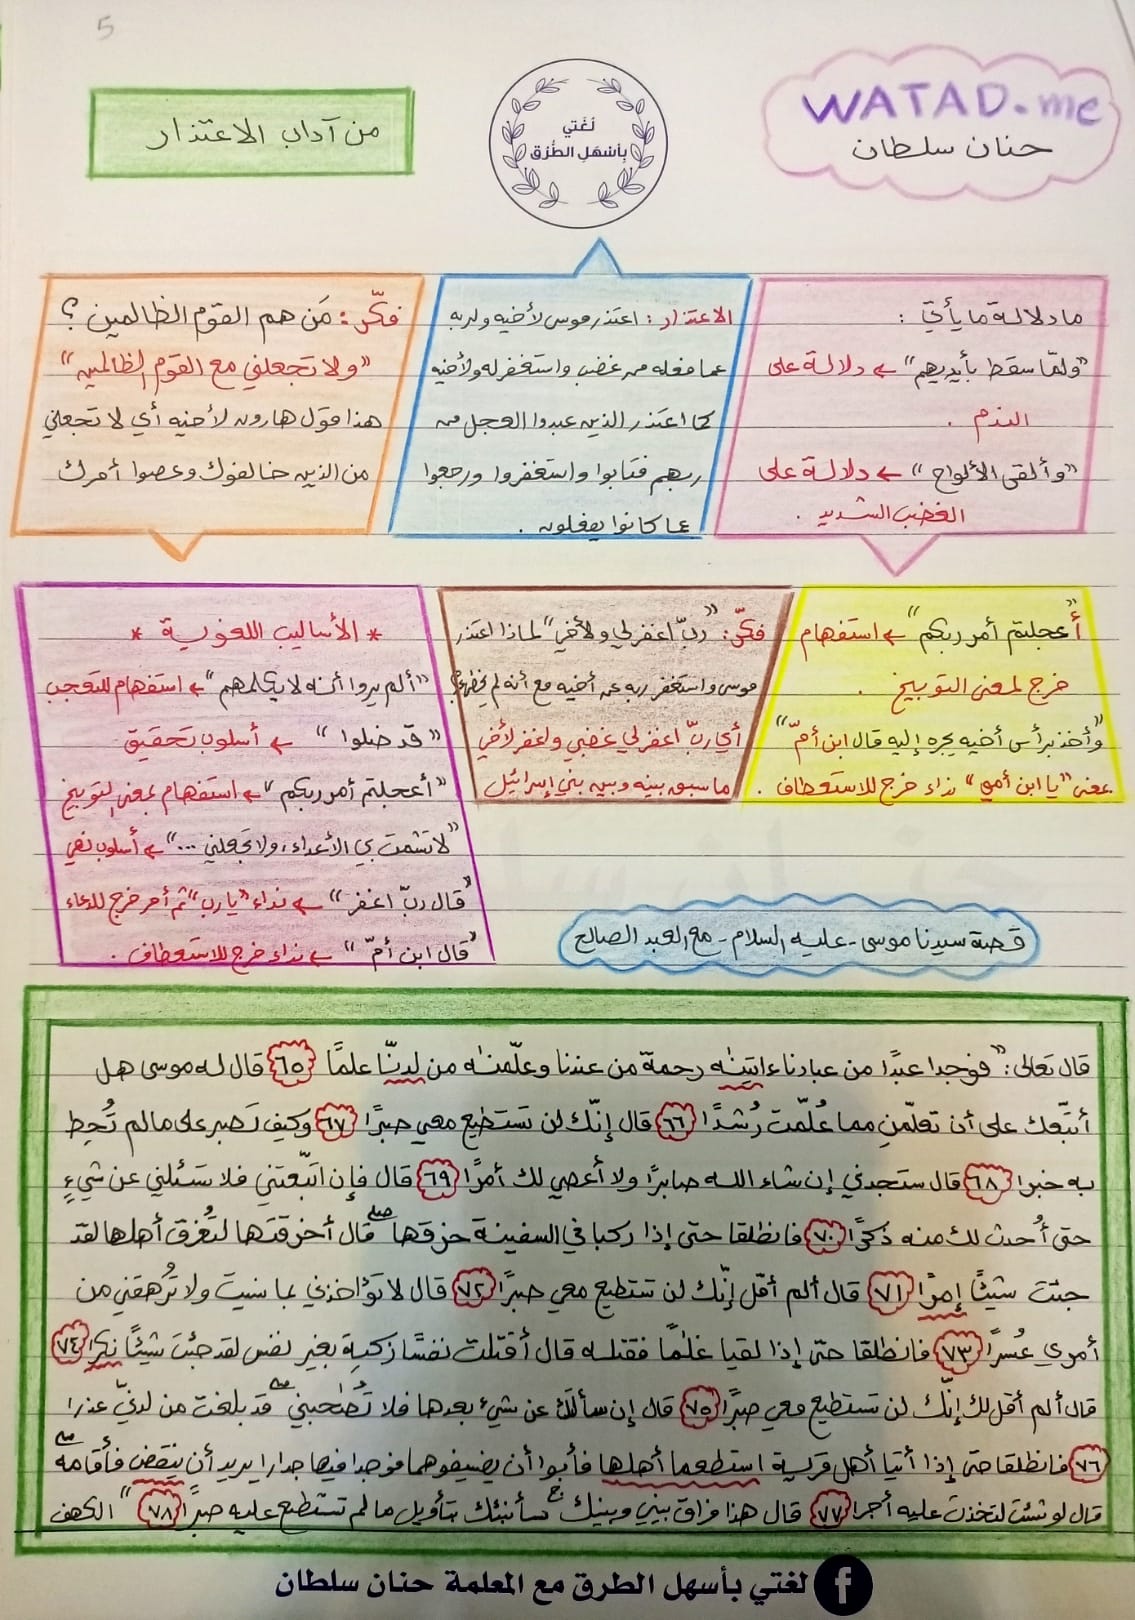 5
WATAD.me
حنان سلطان
لُغَتي
بِأسْهَلِ الطُّرُق
من آداب الاعتذار
ما دلالة ما يأتي :
"ولمّا سقط بأيديهم" ← دلالة على
الندم .
"وألقى الألواح" ← دلالة على
الغضب الشديد .
الاعتذار : اعتذر موسى لأخيه ولربه
عما فعله من غضب واستغفر له ولأخيه
كما اعتذر الذين عبدوا العجل من
ربهم فتابوا واستغفروا ورجعوا
عما كانوا يفعلون .
فكّر : مَن هم القوم الظالمين ؟
"ولا تجعلني مع القوم الظالمين"
هذا قول هارون لأخيه أي لا تجعلني
من الذين خالفوك وعصوا أمرك
"أَعجلتم أمر ربكم" ← استفهام
خرج لمعنى التوبيخ .
"وأخذ برأس أخيه يجره إليه قال ابن أمّ"
بمعنى "يا ابن أمي" نداء خرج للاستعطاف .
فكّر : "ربّ اغفر لي ولأخي" لماذا اعتذر
موسى واستغفر ربه عن أخيه مع أنه لم يخطئ؟
أي ربّ اغفر لي غضبي واغفر لأخي
ما سبق بينه وبين بني إسرائيل
* الأساليب اللغوية *
"ألم يروا أنه لا يكلمهم" ← استفهام للتعجب
"قد ضلوا" ← أسلوب تحقيق
"أعجلتم أمر ربكم" ← استفهام بمعنى التوبيخ
"لا تشمت بي الأعداء، ولا تجعلني ..." ← أسلوب نهي
"قال ربّ اغفر" ← نداء "يا رب" ثم أمر خرج للدعاء
"قال ابن أمّ" ← نداء خرج للاستعطاف .
قصة سيدنا موسى - عليه السلام - مع العبد الصالح
قال تعالى : "فوجدا عبدًا من عبادنا ءاتينٰه رحمة من عندنا وعلّمنٰه من لدنّا علمًا ٦٥ قال له موسى هل
أتبعك على أن تعلّمن مما عُلّمت رُشدًا ٦٦ قال إنّك لن تستطيع معي صبرًا ٦٧ وكيف تَصبر على ما لم تُحِط
به خبرا ٦٨ قال ستجدني إن شاء الله صابرًا ولا أعصي لك أمرًا ٦٩ قال فإن اتبّعتني فلا تسئلني عن شيءٍ
حتى أُحدث لك منه ذكرًا ٧٠ فانطلقا حتى إذا ركبا في السفينة خرقها صلے قال أخرقتَها لتُغرق أهلها لقد
جئت شيئًا إمرًا ٧١ قال ألم أقل إنّك لن تستطيع معي صبرًا ٧٢ قال لا تؤاخذني بما نسيت ولا تُرهقني من
أمري عُسرًا ٧٣ فانطلقا حتى إذا لقيا غلٰمًا فقتله قال أقتلت نفسًا زكية بغير نفس لقد جئت شيئًا نكرًا ٧٤
قال ألم أقل لك إنّك لن تستطيع معي صبرًا ٧٥ قال إن سألتك عن شيء بعدها فلا تُصٰحبني صلے قد بلغت من لدنّي عذرا
٧٦ فانطلقا حتى إذا أتيا أهل قرية استطعما أهلها فأبوا أن يضيفوهما فوجدا فيها جدارا يريد أن ينقض فأقامه صلے
قال لو شئت لتخذت عليه أجرا ٧٧ قال هذا فراق بيني وبينك ج سأنبئك بتأويل ما لم تستطع عليه صبرًا ٧٨" الكهف
لغتي بأسهل الطرق مع المعلمة حنان سلطان